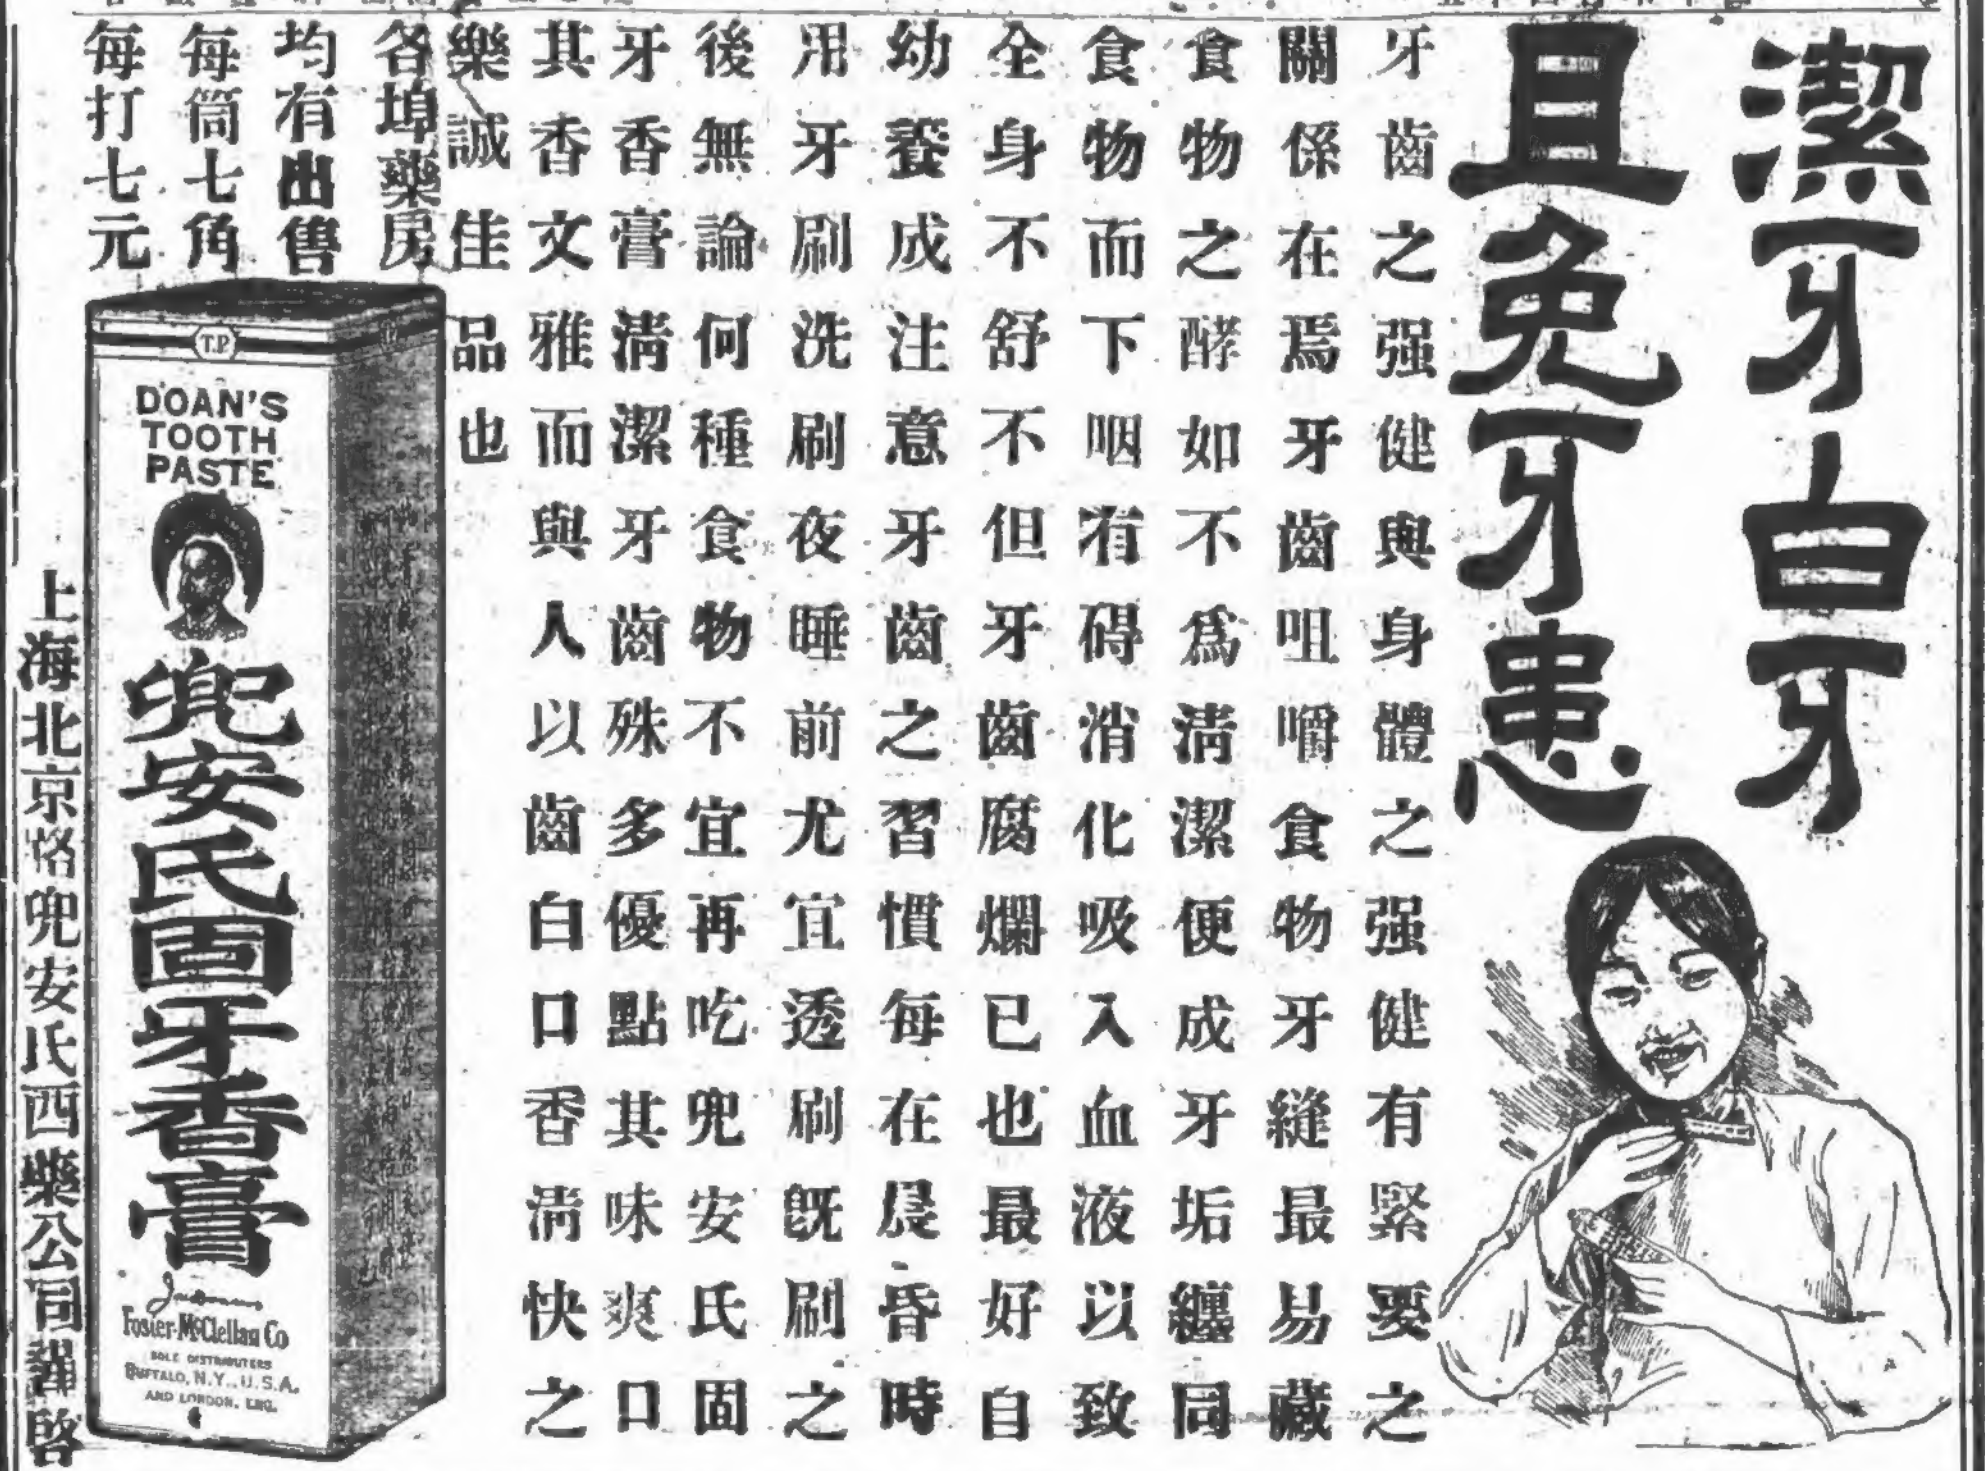 潔牙白牙
且免牙患
牙齒之强健與身體之强健有緊要之
關係在焉牙齒咀嚼食物牙縫最易藏
食物之酵如不爲清潔便成牙垢纏同
食物而下咽有碍消化吸入血液以致
全身不舒不但牙齒腐爛已也最好自
幼養成注意牙齒之習慣每在晨昏時
用牙刷洗刷夜睡前尤宜透刷旣刷之
後無論何種食物不宜再吃兜安氏固
牙香膏清潔牙齒殊多優點其味爽口
其香文雅而與人以齒白口香清快之
樂誠佳品也
各埠藥房
均有出售
每筒七角
每打七元
T.P.
DOAN'S
TOOTH
PASTE
兜安氏固牙香膏
Foster-McClellan Co
SOLE DISTRIBUTERS
BUFFALO, N.Y., U.S.A.
AND LONDON, ENG.
上海北京路兜安氏西藥公司謹啓